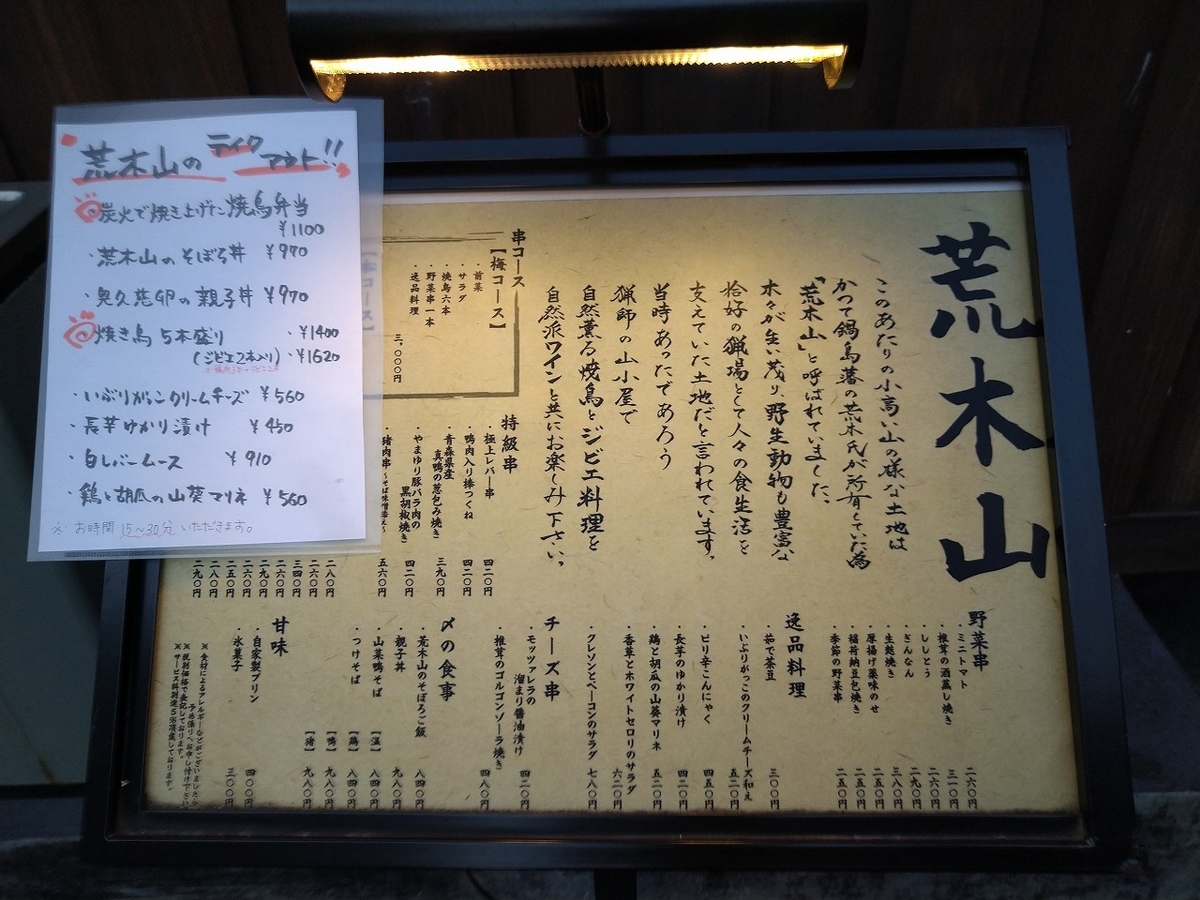 荒木山のテイクアウト!!
炭火で焼き上げた焼鳥弁当
¥1100
・荒木山のそぼろ丼 ¥970
・奥久慈卵の親子丼 ¥970
焼き鳥 5本盛り ・¥1400
(ジビエ2本入り)・¥1620
・いぶりがっこクリームチーズ ¥560
・長芋ゆかり漬け ¥450
・白レバームース ¥910
・鶏と胡瓜の山葵マリネ ¥560
※ お時間 15〜30分 いただきます。
荒木山
このあたりの小高い山の様な土地は
かつて鍋島藩の荒木氏が所有していた為
「荒木山」と呼ばれていました。
木々が生い茂り、野生動物も豊富な
恰好の猟場として人々の食生活を
支えていた土地だと言われています。
当時あったであろう
猟師の山小屋で
自然薫る焼鳥とジビエ料理を
自然派ワインと共にお楽しみ下さい。
串コース
【梅コース】
・前菜
・サラダ
・焼鳥六本
・野菜串一本
・逸品料理
三、〇〇〇円
特級串
・極上レバー串 四二〇円
・鴨肉入り棒つくね 四二〇円
・青森県産
真鴨の葱包み焼き 三九〇円
・やまゆり豚バラ肉の
黒胡椒焼き 四二〇円
・猪肉串〜そば味噌添え〜 五六〇円
二八〇円
二六〇円
三四〇円
二六〇円
二九〇円
二六〇円
二五〇円
二八〇円
二九〇円
野菜串
・ミニトマト 二六〇円
・椎茸の酒蒸し焼き 三一〇円
・ししとう 二六〇円
・ぎんなん 二九〇円
・生麩焼き 三八〇円
・厚揚げ薬味のせ 二五〇円
・稲荷納豆包焼き 二五〇円
・季節の野菜串 二五〇円
逸品料理
・茹で茶豆 三〇〇円
・いぶりがっこのクリームチーズ和え 五二〇円
・ピリ辛こんにゃく 四五〇円
・長芋のゆかり漬け 四二〇円
・鶏と胡瓜の山葵マリネ 五二〇円
・香草とホワイトセロリのサラダ 六二〇円
・クレソンとベーコンのサラダ 七八〇円
チーズ串
・モッツァレラの
溜まり醤油漬け 四二〇円
・椎茸のゴルゴンゾーラ焼き 四八〇円
〆の食事
・荒木山のそぼろご飯 八四〇円
・親子丼 九八〇円
・山菜鴨そば 【温】 八四〇円
・つけそば 【鶏】 八四〇円
【鴨】 九八〇円
【猪】 九八〇円
甘味
・自家製プリン 四〇〇円
・氷菓子 三〇〇円
※食材によるアレルギーなどがございましたら
予め係りへお申し付け下さい
※税別価格で表記しております。
※サービス料別途5%頂戴しております。